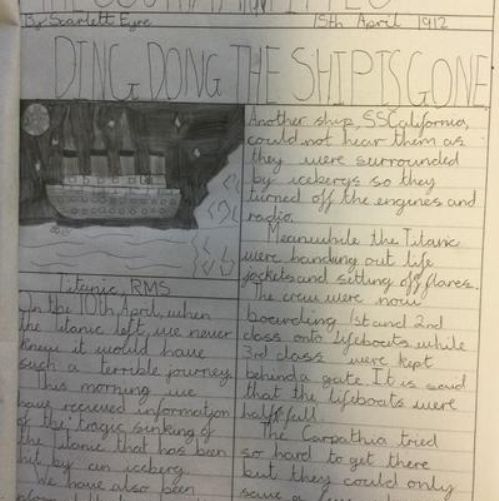 By Scarlett Eyre
15th April 1912
DING DONG THE SHIP IS GONE
Titanic RMS
On the 10th April, when
the titanic left, we never
knew it would have
such a terrible journey
This morning we
have recieved information
of the tragic sinking of
the Titanic that has been
hit by an iceberg.
We have also been
Another ship, SSCalifornia,
could not hear them as
they were surrounded
by icebergs so they
turned off the engines and
radio.
Meanwhile the Titanic
were handing out life
jackets and sitting off flares.
The crew were now
boarding 1st and 2nd
class onto lifeboats while
3rd class were kept
behind a gate It is said
that the lifeboats were
half full
The Carpathia tried
so hard to get there
but they could only
save a